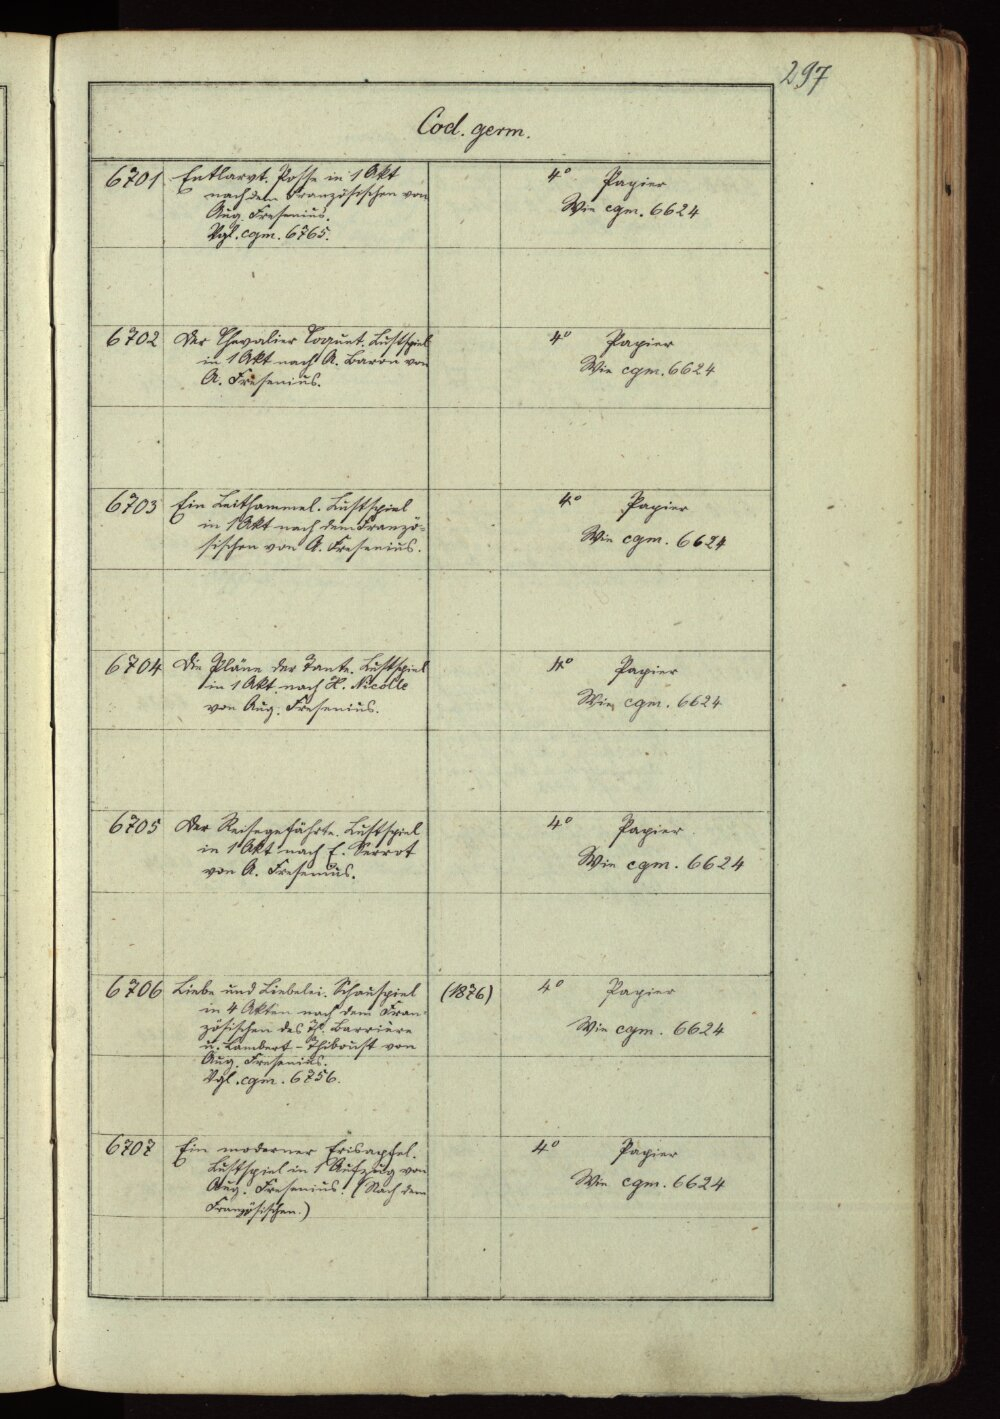 297
Cod. germ.
6701 Entlarvt. Posse in 1 Akt 4° Papier
nach dem Französischen von Wie cgm. 6624
Aug. Fresenius.
Vgl. cgm. 6765.
6702 Der Chevalier Coquet. Lustspiel 4° Papier
in 1 Akt nach A. Baron von Wie cgm. 6624
A. Fresenius.
6703 Ein Leithammel. Lustspiel 4° Papier
in 1 Akt nach dem Franzö- Wie cgm. 6624
sischen von A. Fresenius.
6704 Die Pläne der Tante. Lustspiel 4° Papier
in 1 Akt nach H. Nicolle Wie cgm. 6624
von Aug. Fresenius.
6705 Der Reisegefährte. Lustspiel 4° Papier
in 1 Akt nach E. Verrot Wie cgm. 6624
von A. Fresenius.
6706 Liebe und Liebelei. Schauspiel (1876) 4° Papier
in 4 Akten nach dem Fran-
zösischen des Th. Barrière Wie cgm. 6624
u. Lambert-Thiboust von
Aug. Fresenius.
Vgl. cgm. 6756.
6707 Ein moderner Erisapfel. 4° Papier
Lustspiel in 1 Aufzug von Wie cgm. 6624
Aug. Fresenius. (Nach dem
Französischen.)